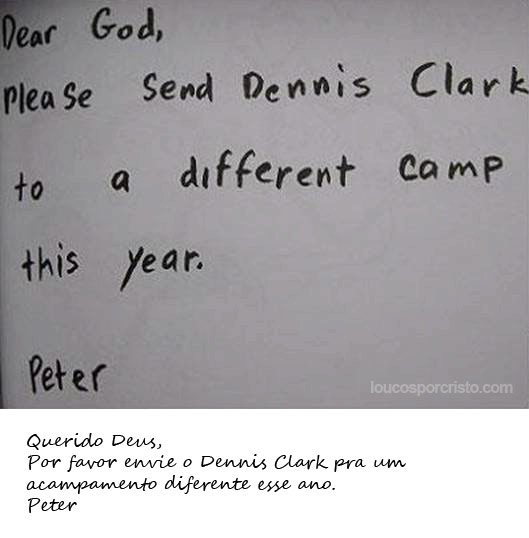 Dear God,
Please Send Dennis Clark
to a different camp
this year.
Peter
loucosporcristo.com
Querido Deus,
Por favor envie o Dennis Clark pra um
acampamento diferente esse ano.
Peter